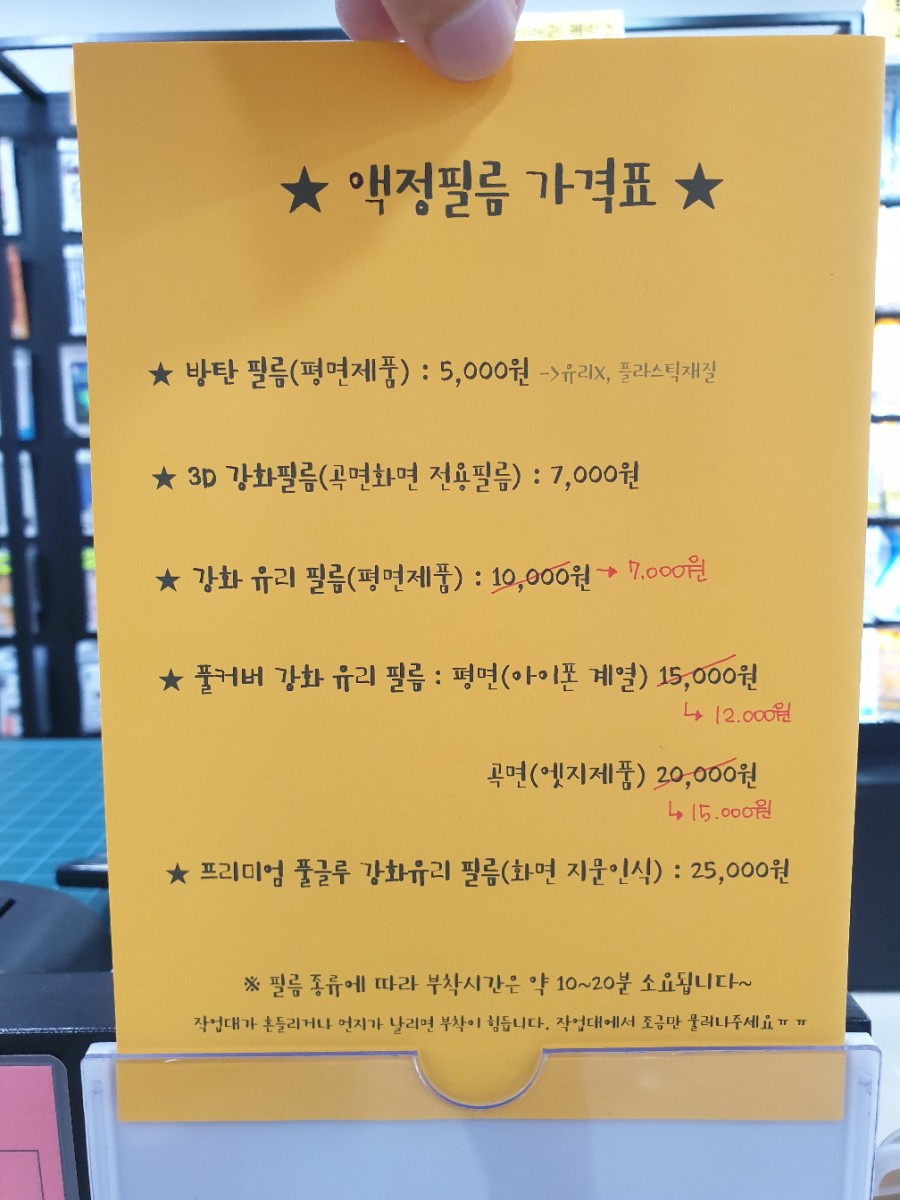 ★ 액정필름 가격표 ★
★ 방탄 필름(평면제품) : 5,000원 ->유리X, 플라스틱재질
★ 3D 강화필름(곡면화면 전용필름) : 7,000원
★ 강화 유리 필름(평면제품) : 10,000원 → 7.000원
★ 풀커버 강화 유리 필름 : 평면(아이폰 계열) 15,000원
↳ 12.000원
곡면(엣지제품) 20,000원
↳ 15.000원
★ 프리미엄 풀글루 강화유리 필름(화면 지문인식) : 25,000원
※ 필름 종류에 따라 부착시간은 약 10~20분 소요됩니다~
작업대가 흔들리거나 먼지가 날리면 부착이 힘듭니다. 작업대에서 조금만 물러나주세요ㅠㅠ